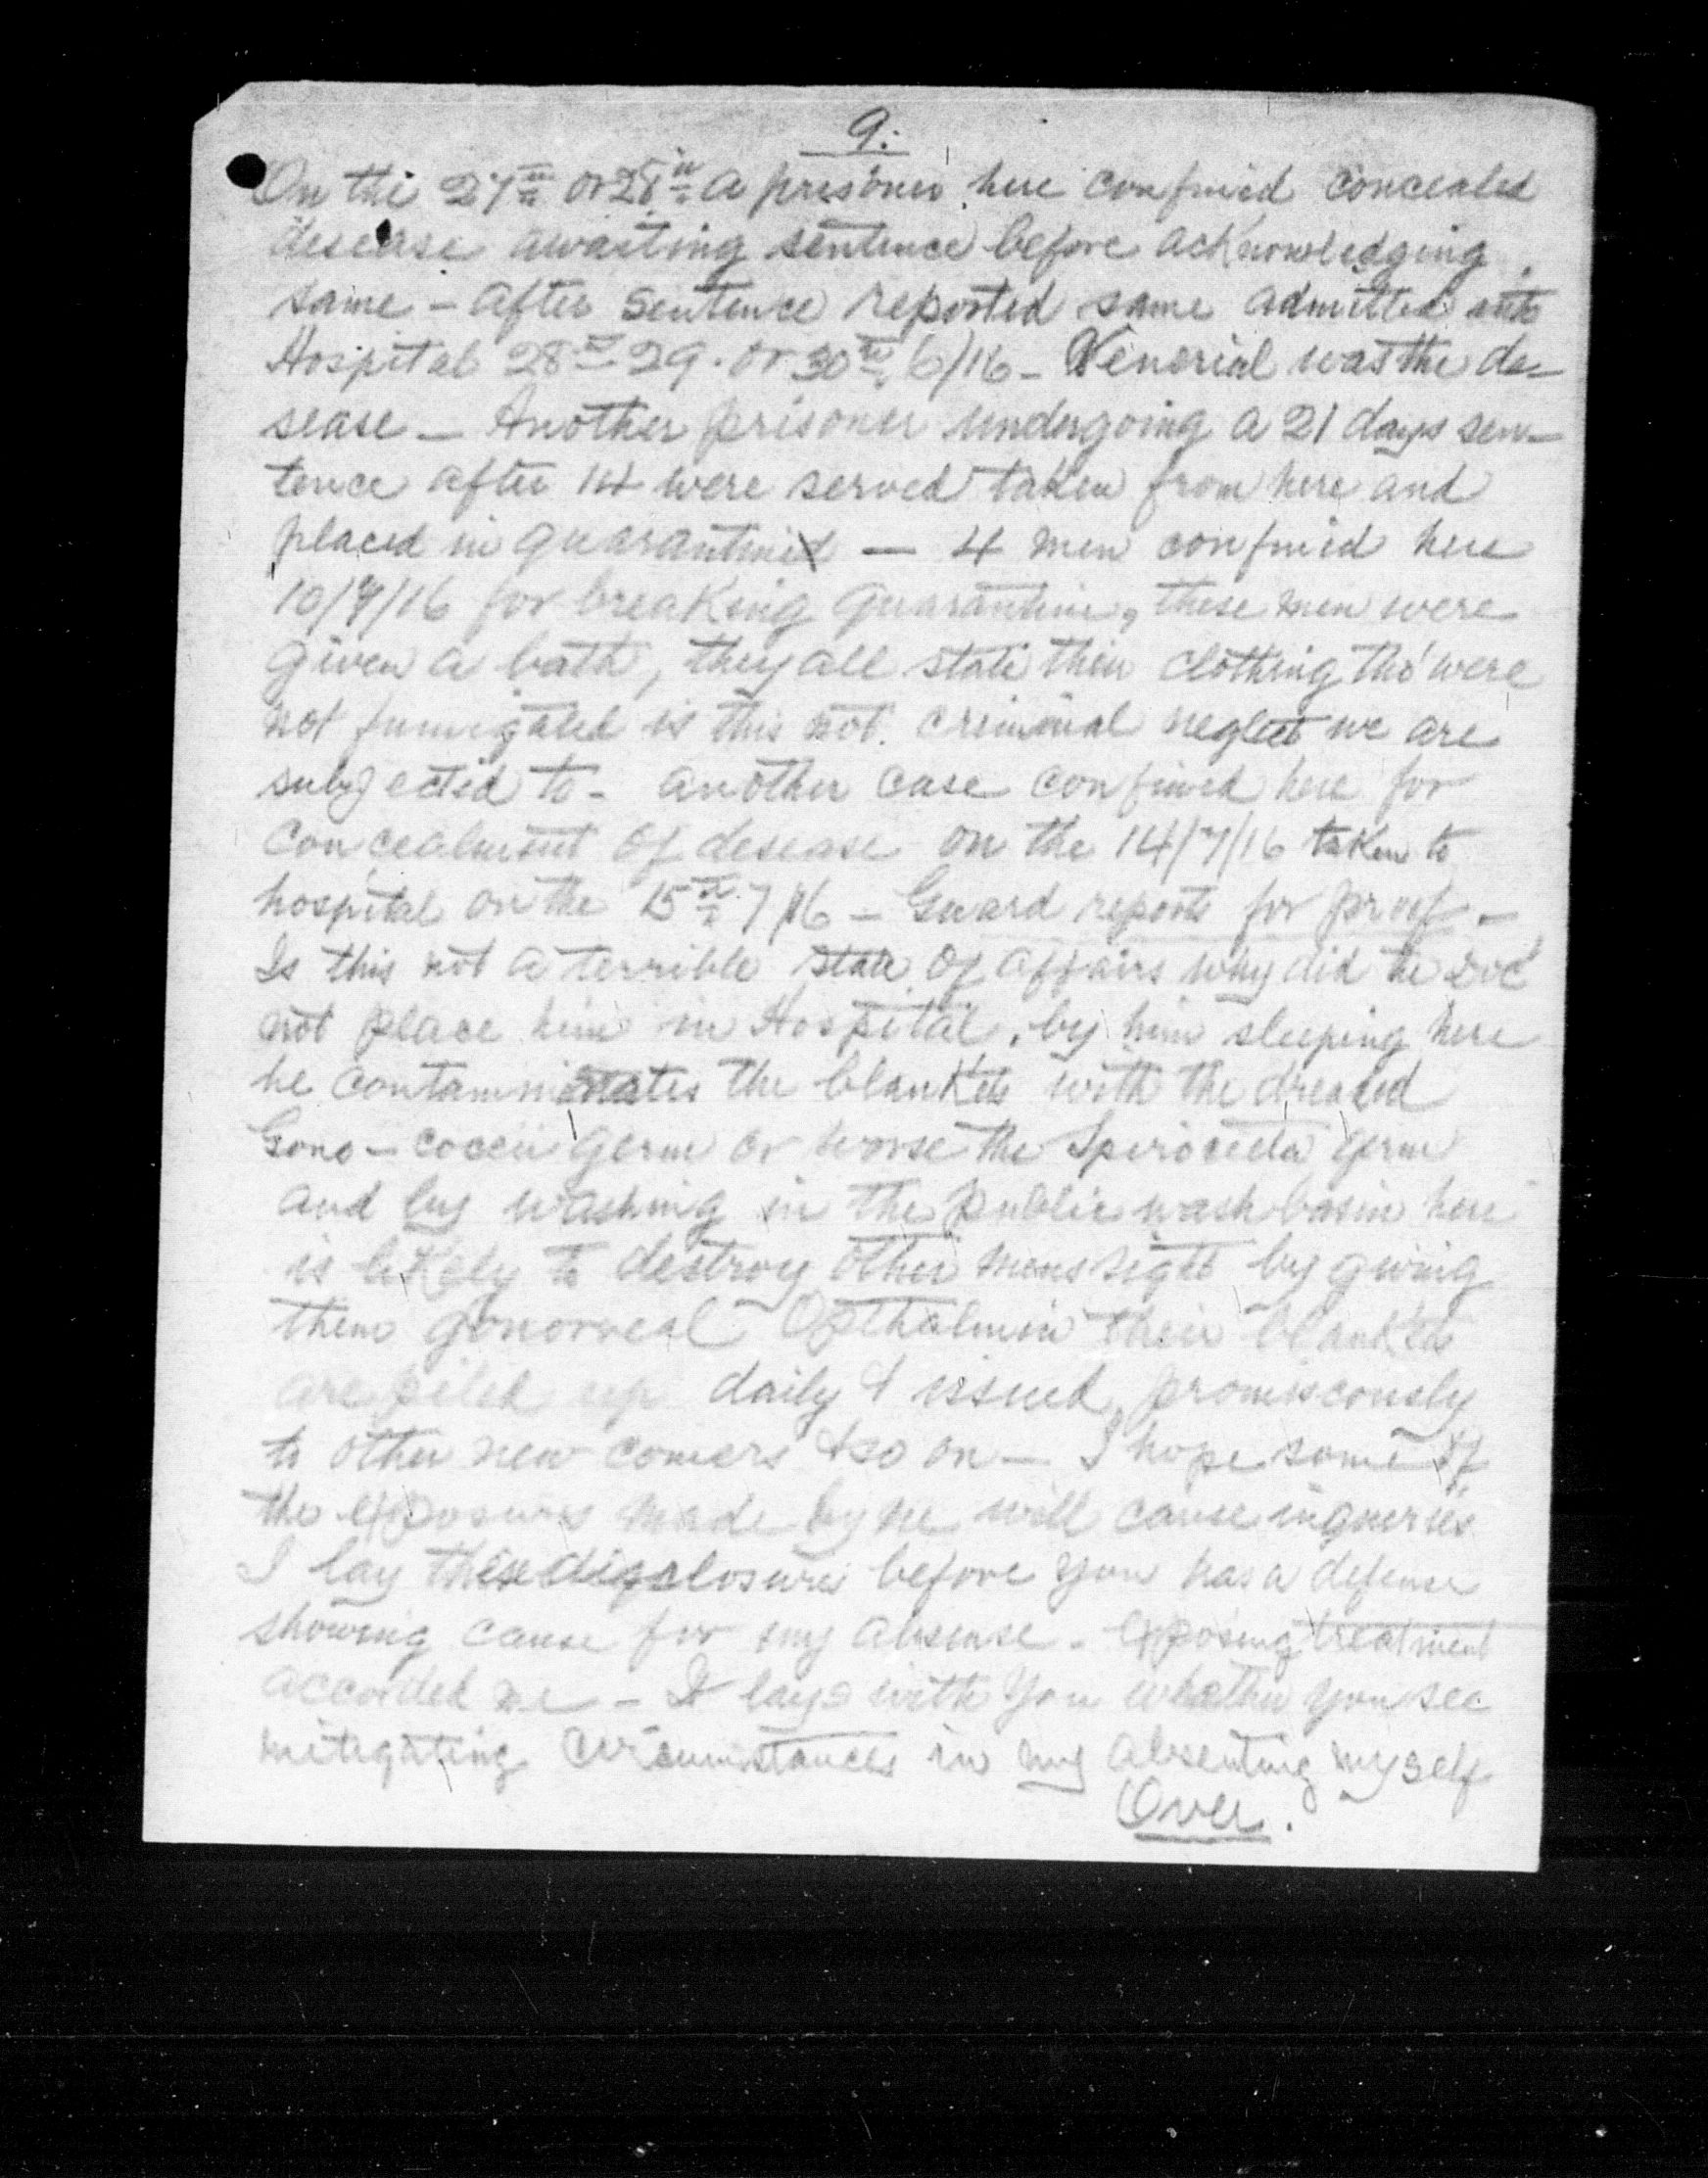 9.
On the 27th or 28th a prisoner here confined concealed
desease awaiting sentence before acknowledging
same - after sentence reported same admitted into
Hospital 28th 29. or 30th 6/16 - Venerial was the de-
sease - Another prisoner undergoing a 21 days sen-
tence after 14 were served taken from here and
placed in quarantine — 4 men confined here
10/7/16 for breaking quarantine, these men were
given a bath, they all state their clothing tho' were
not fumigated is this not criminal neglect we are
subjected to - another case confined here for
concealment of desease on the 14/7/16 taken to
hospital on the 15th 7/16 - Guard reports for proof -
Is this not a terrible state of affairs why did the Doc
not place him in Hospital, by him sleeping here
he contaminates the blankets with the dreaded
Gono - coccii germ or worse the Spiroceeta germ
and by washing in the public wash basin here
is likely to destroy other mens sight by giving
them gonorreal Opthalmin their blankets
are piled up daily & issued promiscously
to other new comers & so on — I hope some of
the exposures made by me will cause inqueries
I lay these disclosures before you has a defense
showing cause for my absense - exposing treatment
accorded me - It lays with you whether you see
mitigating circumstances in my absenting myself
Over.